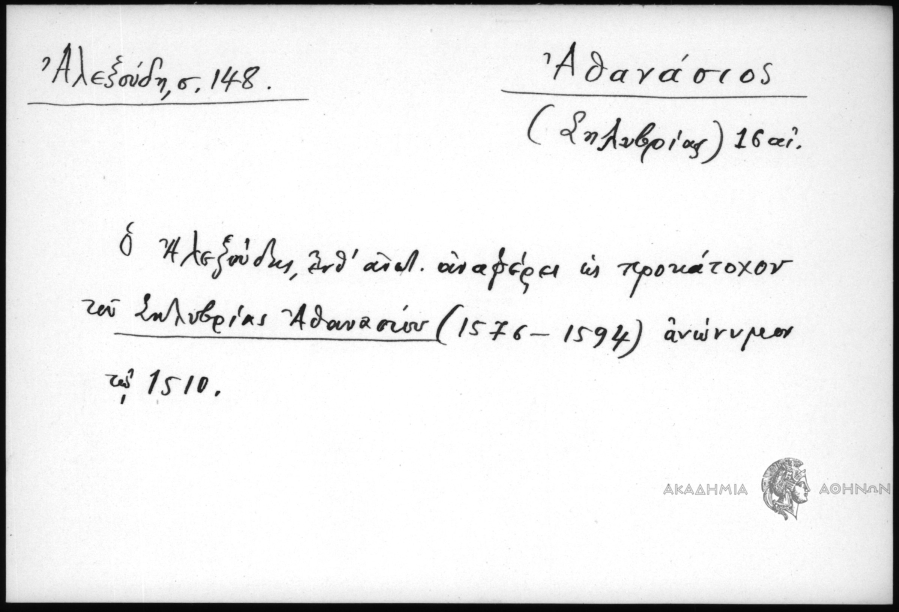 Ἀλεξούδη, σ. 148.
Ἀθανάσιος
(Σηλυβρίας) 16 αἰ.
ὁ Ἀλεξούδης, ἀναφέρει ὡς προκάτοχον
τοῦ Σηλυβρίας Ἀθανασίου (1576 – 1594) ἀνώνυμον
τῷ 1510.
ΑΚΑΔΗΜΙΑ ΑΘΗΝΩΝ